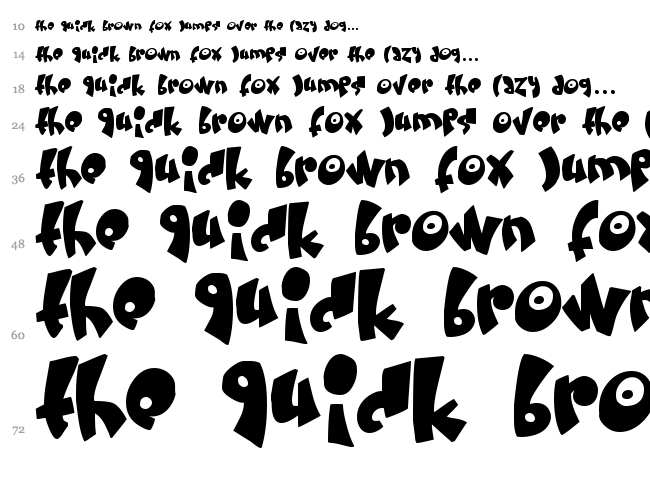 10 the quick brown fox jumps over the lazy dog...
14 the quick brown fox jumps over the lazy dog...
18 the quick brown fox jumps over the lazy dog...
24 the quick brown fox jumps over the l
36 the quick brown fox jump
48 the quick brown fox
60 the quick brown
72 the quick bro